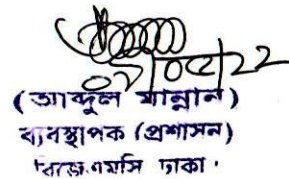 ০৭/০৫/২২
(আব্দুল মান্নান)
ব্যবস্থাপক (প্রশাসন)
বিজেএমসি ঢাকা।